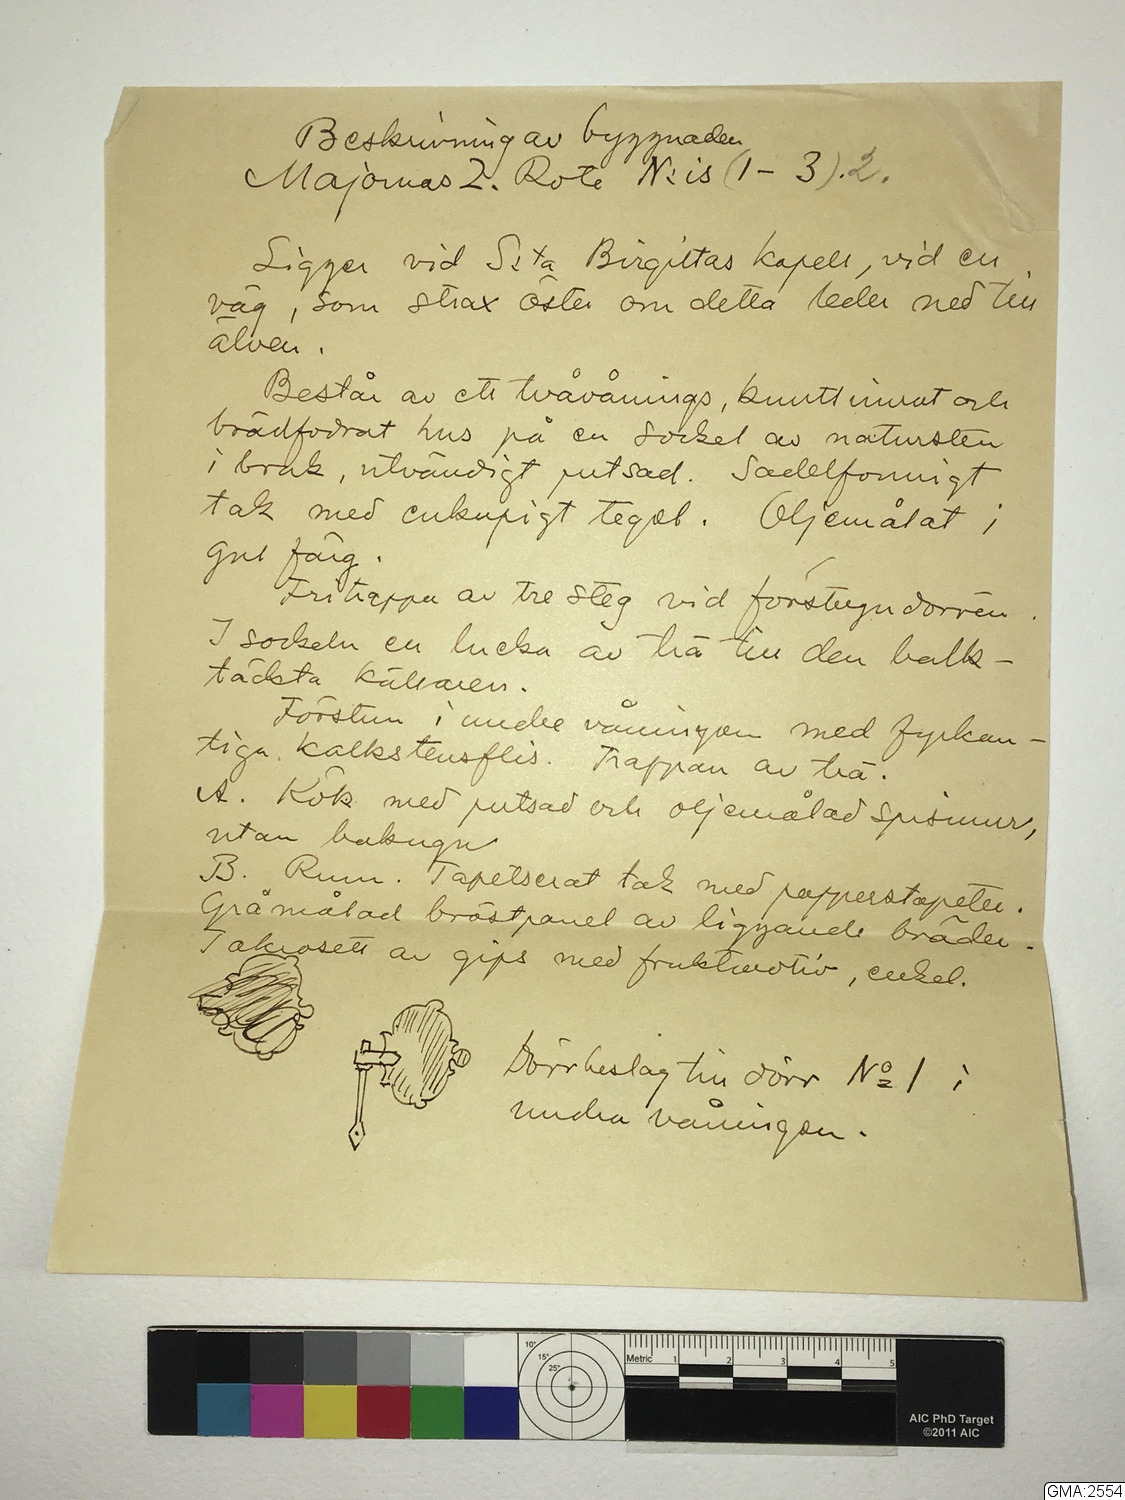 Beskrivning av byggnaden
Majornas 2. Rote N:is (1 - 3).2.
Ligger vid S:ta Birgittas kapell, vid en
väg, som strax öster om detta leder ned till
älven.
Består av ett tvåvånings, knuttimrat och
brädfodrat hus på en sockel av natursten
i bruk, utvändigt putsad. Sadelformigt
tak med enkupigt tegel. Oljemålat i
gul färg.
Fritrappa av tre steg vid förstugudörren.
I sockeln en lucka av trä till den balk-
täckta källaren.
Förstun i undre våningen med fyrkan-
tiga kalkstensflis. Trappan av trä.
A. Kök med putsad och oljemålad spismur,
utan bakugn
B. Rum. Tapetserat tak med papperstapeter.
Gråmålad bröstpanel av liggande bräder.
Takrosett av gips med fruktmotiv, enkel.
Dörrbeslag till dörr No 1 i
undra våningen.
Metric 1 2 3 4 5
10° 15° 25°
AIC PhD Target
©2011 AIC
GMA:2554